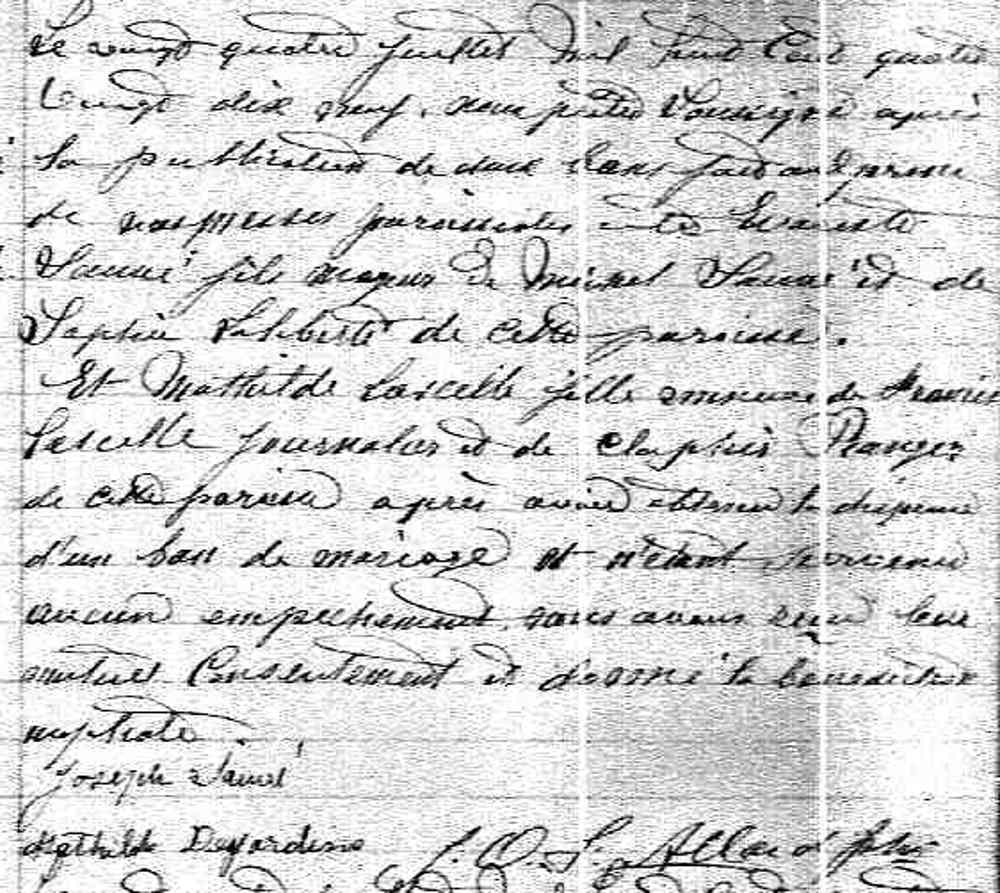 Le vingt quatre juillet mil huit cent quatre
vingt dix neuf, nous prêtre soussigné après
la publication de deux bans faite au prône
de nos messes paroissiales entre
Sauvé fils majeur de Michel Sauvé et de
Sophie Laliberté de cette paroisse.
Et Mathilde Lascelle fille mineure de Francis
Lascelle journalier et de Elaphis Ranger
de cette paroisse après avoir obtenu la dispense
d'un ban de mariage et n'étant survenu
aucun empêchement, nous avons reçu leur
mutuel Consentement et donné la bénédiction
nuptiale.
Joseph Sauvé
Mathilde Desjardins J. O. S. Allard Ptre